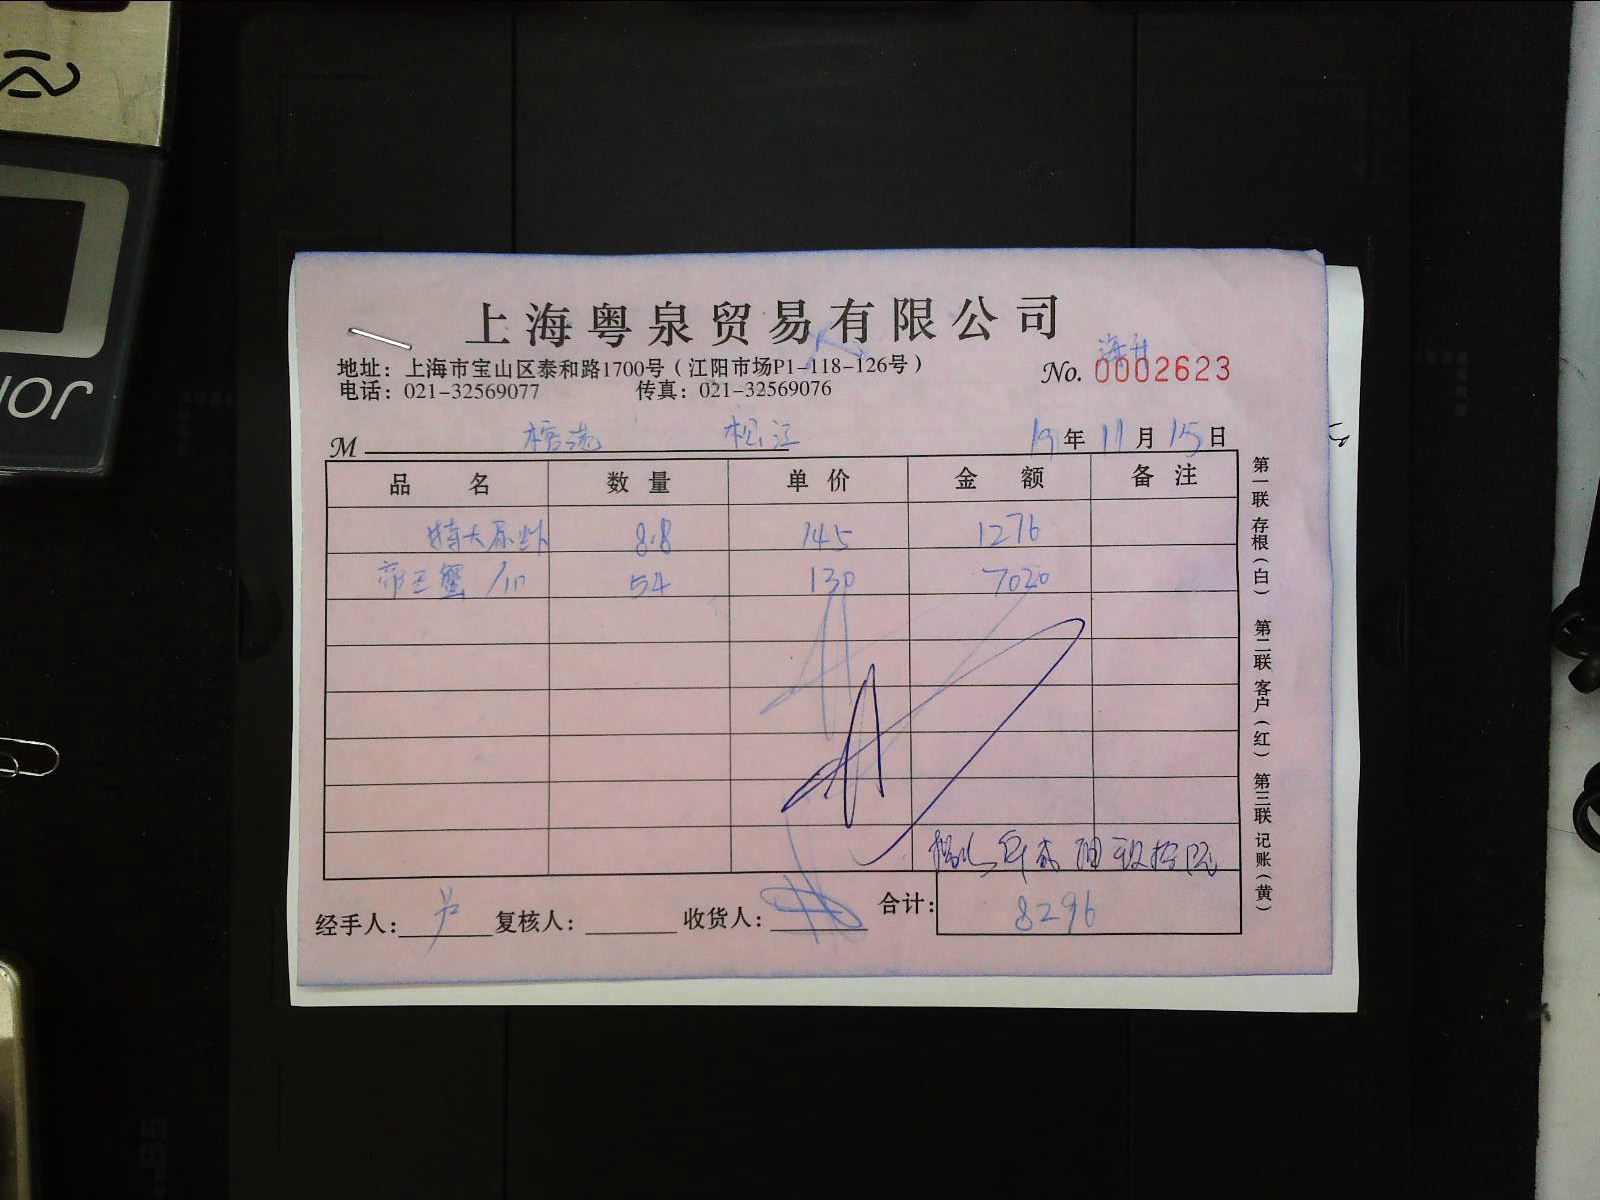 上海粤泉贸易有限公司
地址：上海市宝山区泰和路1700号（江阳市场P1-118-126号）
No. 0002623
电话：021-32569077 传真：021-32569076
M 松江 19年11月15日
品名 数量 单价 金额 备注
特大原 8.8 145 1276
帝王蟹 54 130 7020
经手人： 复核人： 收货人： 合计： 8296
第一联 存根（白） 第二联 客户（红） 第三联 记账（黄）